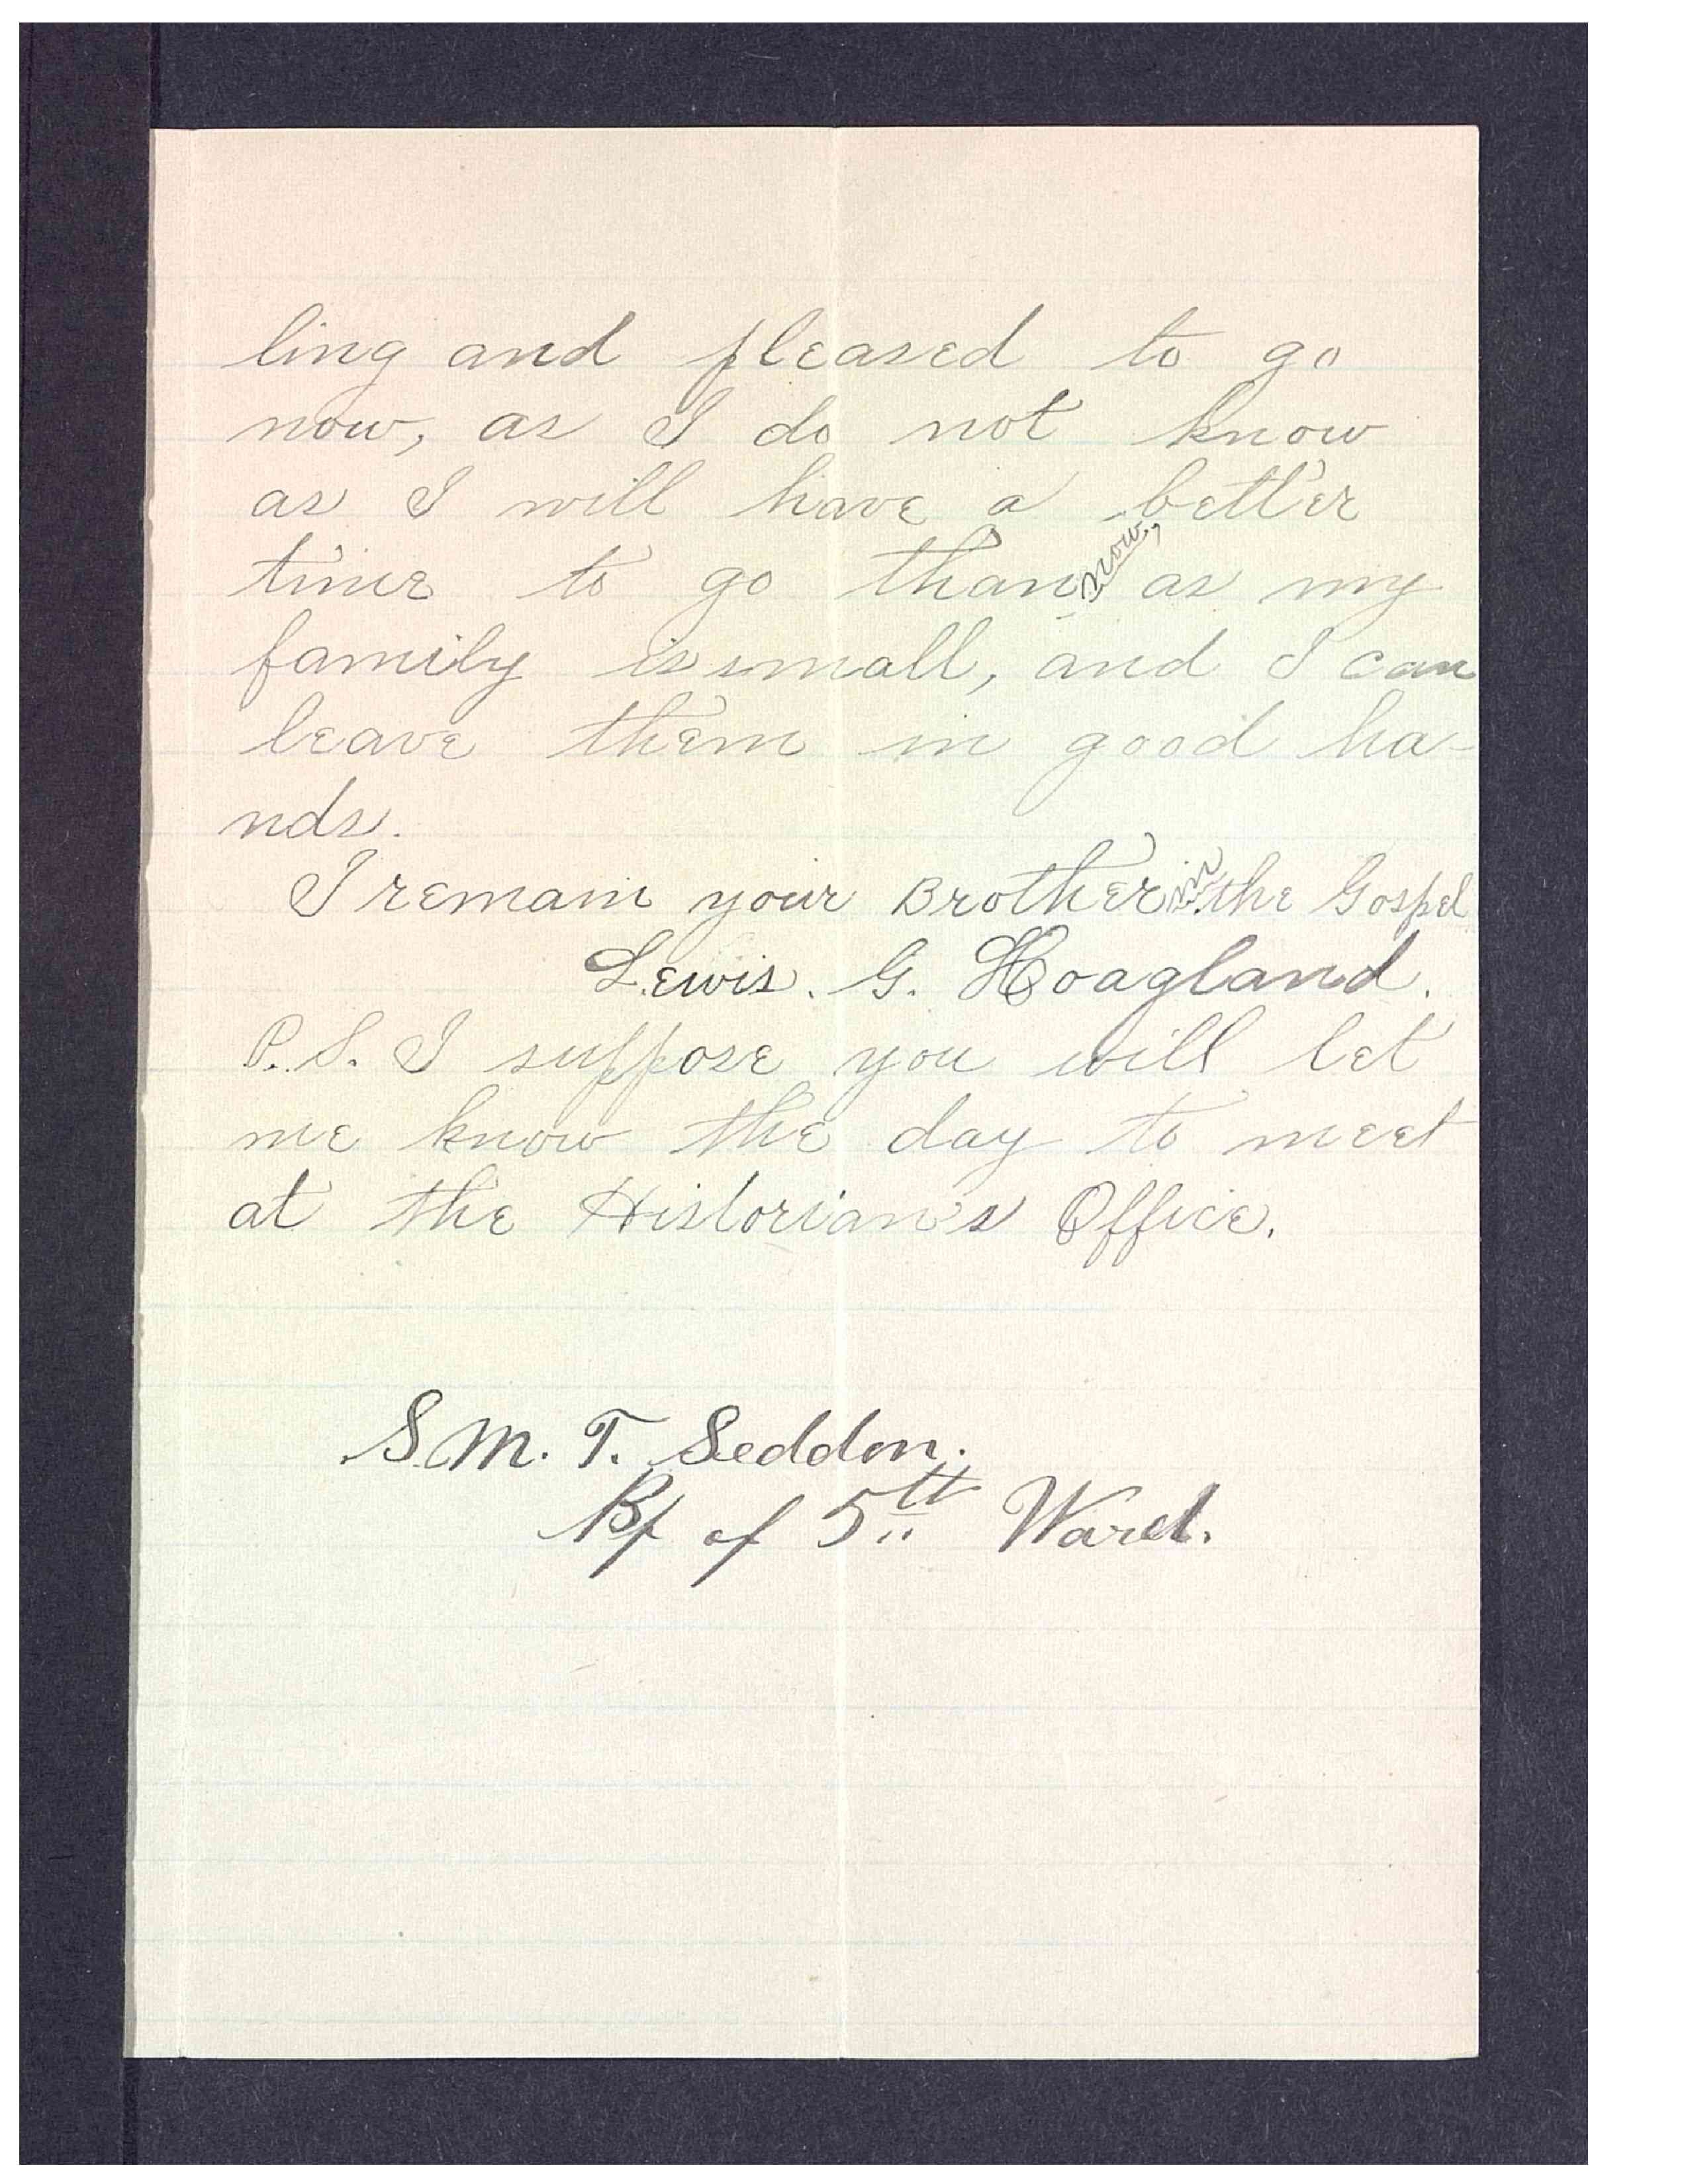 ling and pleased to go
now, as I do not know
as I will have a better
time to go than now, as my
family is small, and I can
leave them in good ha-
nds.
I remain your Brother in the Gospel
Lewis. G. Hoagland.
P.S. I suppose you will let
me know the day to meet
at the Historian's Office.
S. M. T. Seddon.
Bp of 5th Ward.